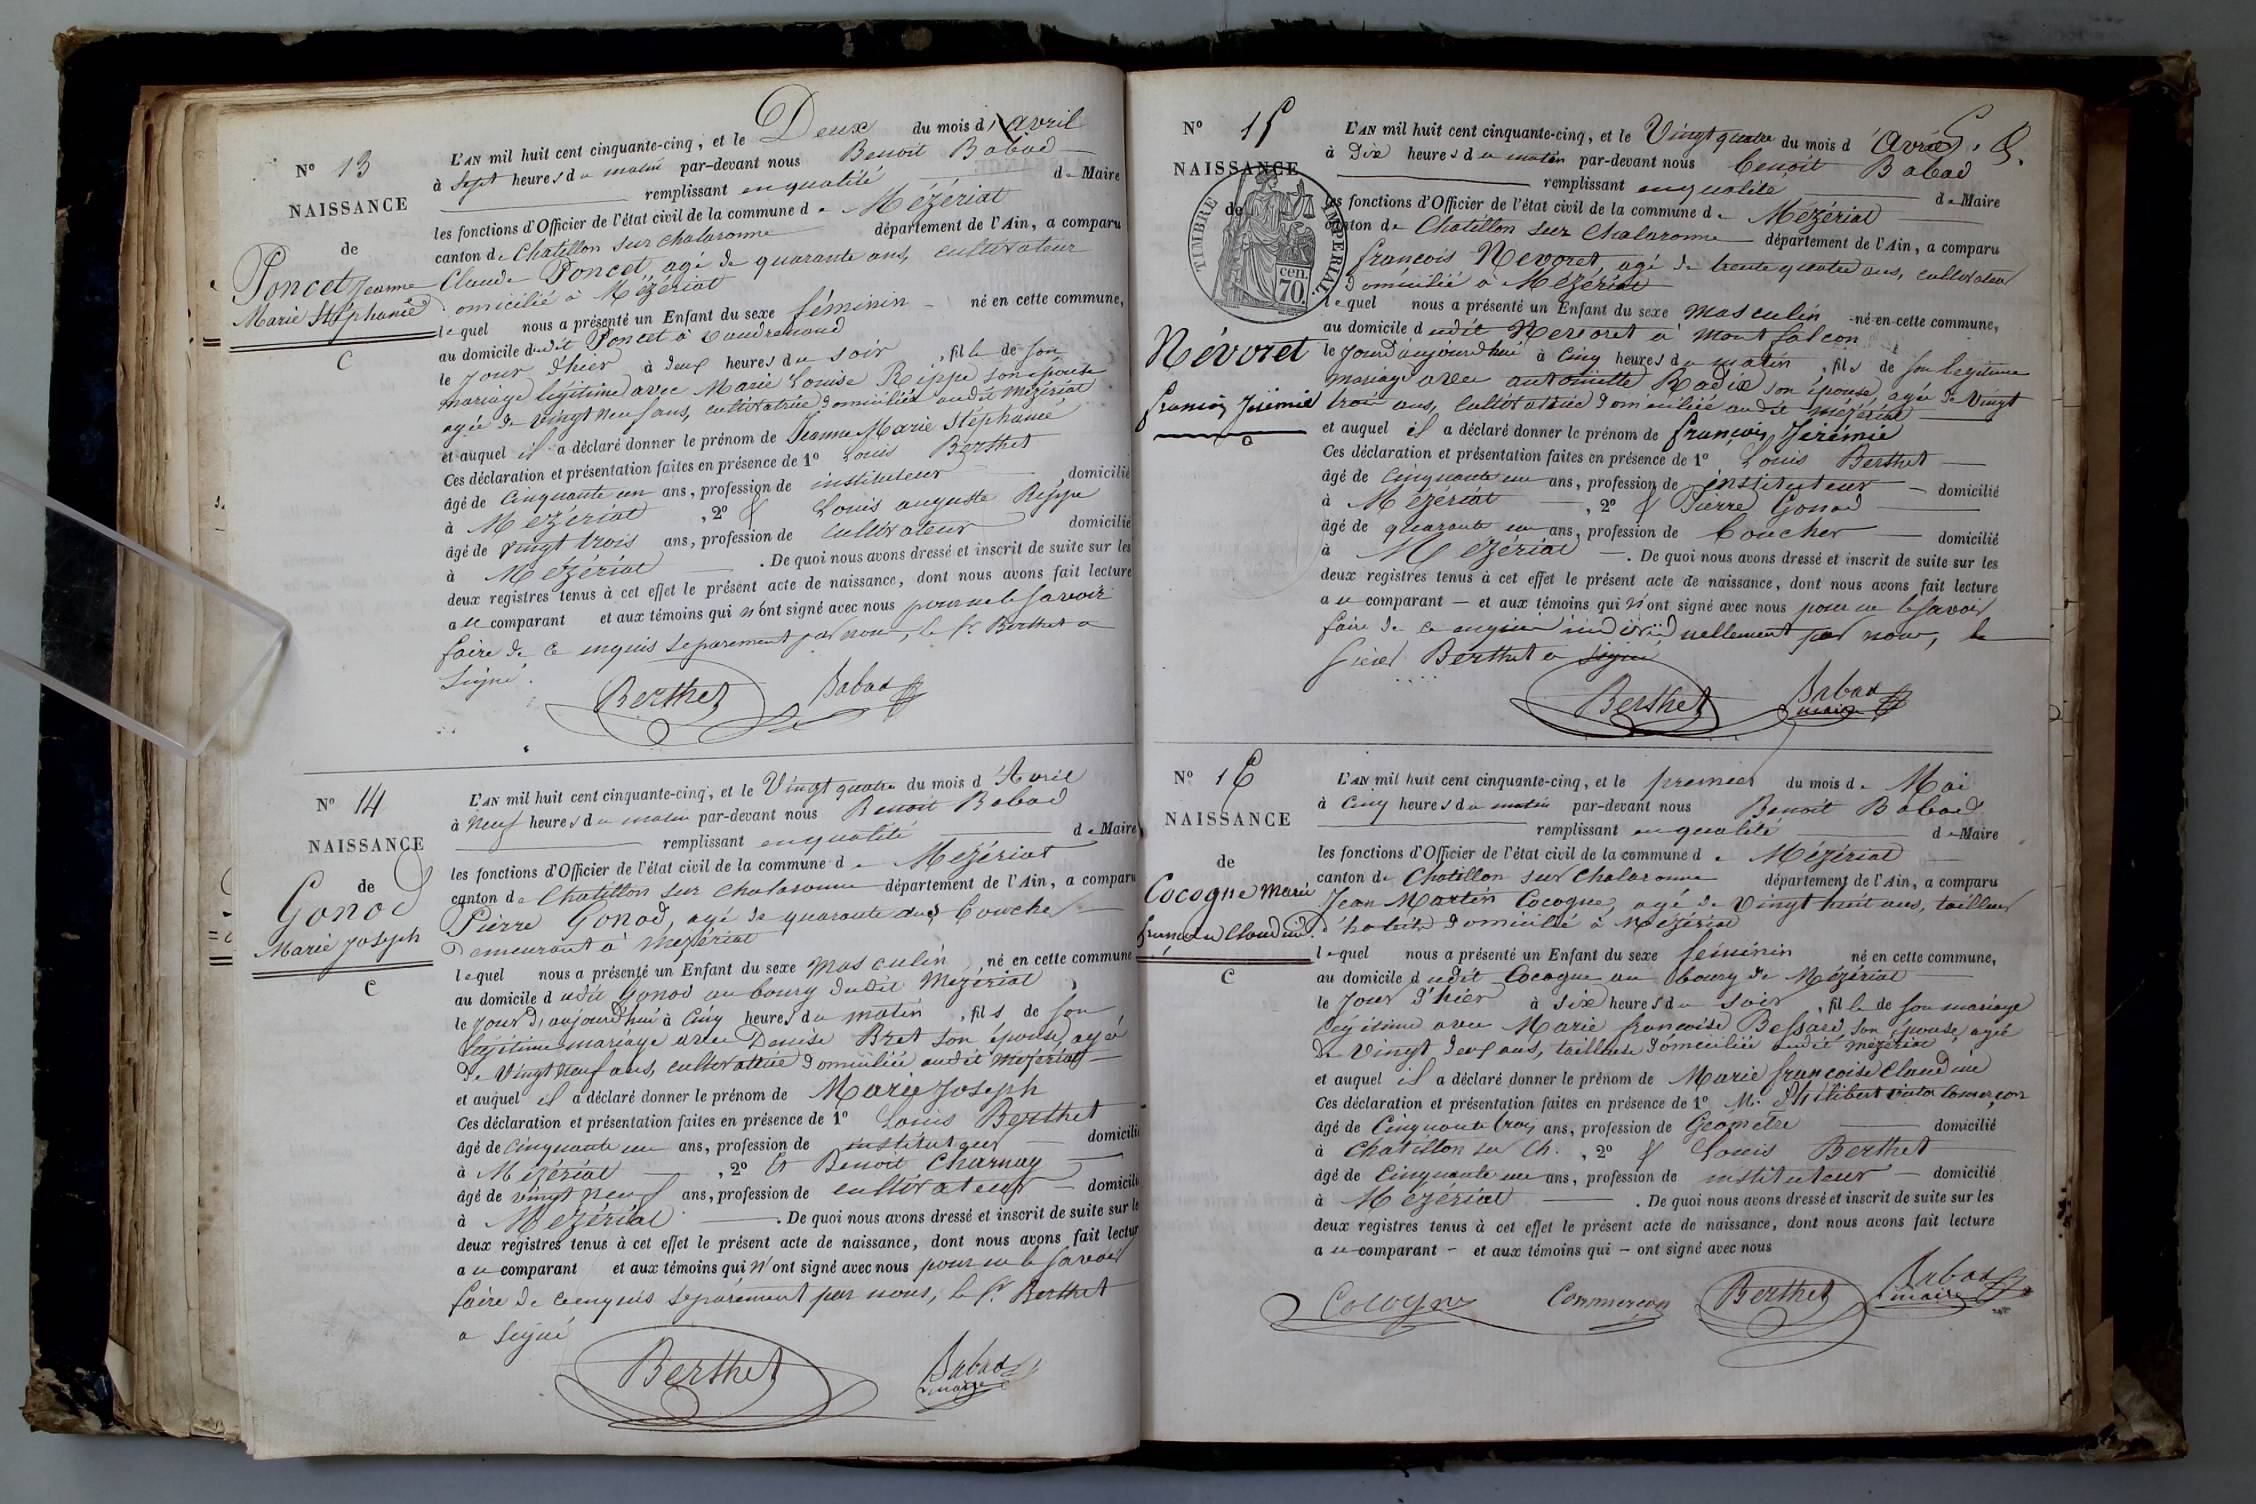 N° 13
NAISSANCE
de
Poncet Jeanne
Marie Stéphanie
C
L'AN mil huit cent cinquante-cinq, et le Deux du mois d'avril
à Sept heures du matin par-devant nous Benoit Babad
remplissant en qualité de Maire
les fonctions d'Officier de l'état civil de la commune de Mézériat
canton de Chatillon sur chalaronne département de l'Ain, a comparu
Claude Poncet, agé de quarante ans, cultivateur
domicilié à Mézériat
lequel nous a présenté un Enfant du sexe féminin né en cette commune,
au domicile dudit Poncet à Vaudrenoud
le jour d'hier à deux heures du soir, fille de son
mariage légitime avec Marie Louise Rippe son épouse
agée de vingt neuf ans, cultivatrice domiciliée audit Mézériat
et auquel il a déclaré donner le prénom de Jeanne Marie Stéphanie
Ces déclaration et présentation faites en présence de 1° Louis Berthet
âgé de cinquante un ans, profession de instituteur domicilié
à Mézériat, 2° & Louis auguste Rippe
âgé de vingt trois ans, profession de cultivateur domicilié
à Mézériat. De quoi nous avons dressé et inscrit de suite sur les
deux registres tenus à cet effet le présent acte de naissance, dont nous avons fait lecture
au comparant et aux témoins qui n'ont signé avec nous pour ne le savoir
faire de ce enquis separement par nous, le Sr Berthet a
signé.
Berthet Babad
N° 14
NAISSANCE
de
Gonod
Marie Joseph
C
L'AN mil huit cent cinquante-cinq, et le Vingt quatre du mois d'Avril
à Neuf heures du matin par-devant nous Benoit Babad
remplissant en qualité de Maire
les fonctions d'Officier de l'état civil de la commune de Mézériat
canton de Chatillon sur chalaronne département de l'Ain, a comparu
Pierre Gonod, agé de quarante ans Coucher
demeurant à Mézériat
lequel nous a présenté un Enfant du sexe masculin né en cette commune
au domicile dudit Gonod au bourg dudit Mézériat
le jour d'aujourd'hui à cinq heures du matin, fils de son
légitime mariage avec Denise Bret son épouse, agée
de Vingt neuf ans, cultivatrice domiciliée audit Mézériat
et auquel il a déclaré donner le prénom de Marie Joseph
Ces déclaration et présentation faites en présence de 1° Louis Berthet
âgé de cinquante un ans, profession de instituteur domicilié
à Mézériat, 2° Et Benoit Charnay
âgé de vingt neuf ans, profession de cultivateur domicilié
à Mézériat. De quoi nous avons dressé et inscrit de suite sur le
deux registres tenus à cet effet le présent acte de naissance, dont nous avons fait lectur
au comparant et aux témoins qui n'ont signé avec nous pour ne le savoir
faire de ce enquis séparément par nous, le Sr Berthet
a signé
Berthet Babad
maire
N° 15
NAISSANCE
de
TIMBRE IMPERIAL
cen.
70.
Névoret
françois Jérémie
L'AN mil huit cent cinquante-cinq, et le Vingt quatre du mois d'Avril
à Dix heures du matin par-devant nous Benoit Babad
remplissant en qualité de Maire
les fonctions d'Officier de l'état civil de la commune de Mézériat
canton de Chatillon sur Chalaronne département de l'Ain, a comparu
françois Nevoret agé de trente quatre ans, cultivateur
domicilié à Mézériat
lequel nous a présenté un Enfant du sexe masculin né en cette commune,
au domicile dudit Nevoret à Montfalcon
le jour d'aujourd'hui à cinq heures du matin, fils de son légitime
mariage avec antoinette Radix son épouse, agée de Vingt
trois ans, cultivatrice domiciliée audit Mézériat
et auquel il a déclaré donner le prénom de françois Jérémie
Ces déclaration et présentation faites en présence de 1° Louis Berthet
âgé de cinquante un ans, profession de instituteur domicilié
à Mézériat, 2° & Pierre Gonod
âgé de quarante un ans, profession de Coucher domicilié
à Mézériat. De quoi nous avons dressé et inscrit de suite sur les
deux registres tenus à cet effet le présent acte de naissance, dont nous avons fait lecture
au comparant et aux témoins qui n'ont signé avec nous pour ne le savoir
faire de ce enquis individuellement par nous, le
Sieur Berthet a signé
Berthet Babad
maire
N° 16
NAISSANCE
de
Cocogne Marie
françoise Claudine
C
L'AN mil huit cent cinquante-cinq, et le premier du mois de Mai
à cinq heures du matin par-devant nous Benoit Babad
remplissant en qualité de Maire
les fonctions d'Officier de l'état civil de la commune de Mézériat
canton de Chatillon sur Chalaronne département de l'Ain, a comparu
Jean Martin Cocogne, agé de Vingt huit ans, tailleur
d'habits domicilié à Mézériat
lequel nous a présenté un Enfant du sexe féminin né en cette commune,
au domicile dudit Cocogne au bourg de Mézériat
le jour d'hier à six heures du soir, fille de son mariage
légitime avec Marie françoise Bessard son épouse, agée
de Vingt deux ans, tailleuse domiciliée audit Mézériat
et auquel il a déclaré donner le prénom de Marie françoise Claudine
Ces déclaration et présentation faites en présence de 1° M. Philibert victor Comerçon
âgé de Cinquante trois ans, profession de Géomètre domicilié
à Chatillon sur Ch., 2° & Louis Berthet
âgé de cinquante un ans, profession de instituteur domicilié
à Mézériat. De quoi nous avons dressé et inscrit de suite sur les
deux registres tenus à cet effet le présent acte de naissance, dont nous avons fait lecture
au comparant et aux témoins qui ont signé avec nous
Cocogne Commerçon Berthet Babad
maire